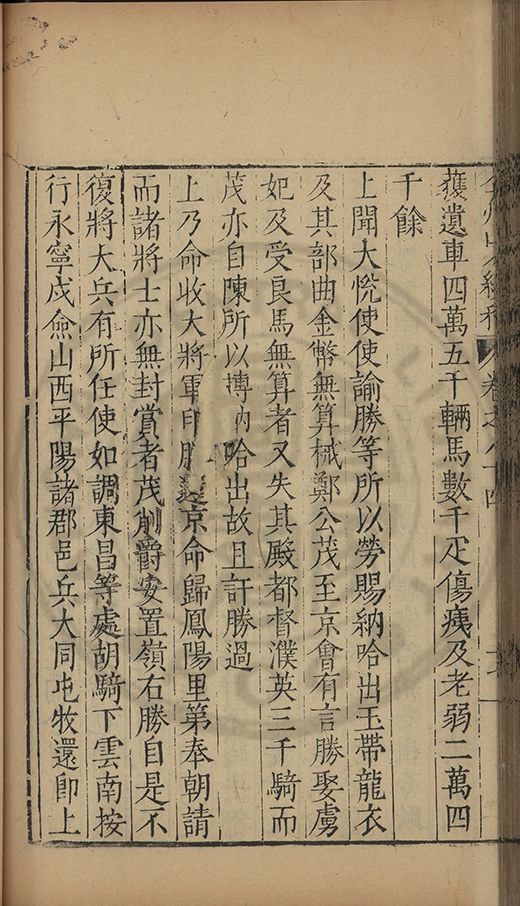 弇州史料卷之八十四
獲遺車四萬五千輛馬數千疋傷殘及老弱二萬四
千餘
上聞大悅使使諭勝等所以勞賜納哈出玉帶龍衣
及其部曲金幣無算械鄭公茂至京會有言勝娶虜
妃及受良馬無算者又失其殿都督濮英三千騎而
茂亦自陳所以摶納哈出故且訐勝過
上乃命收大將軍印勝還京命歸鳳陽里第奉朝請
而諸將士亦無封賞者茂削爵安置嶺右勝自是不
復將大兵有所任使如調東昌等處胡騎下雲南按
行永寧戍僉山西平陽諸郡邑兵大同屯牧還卽上